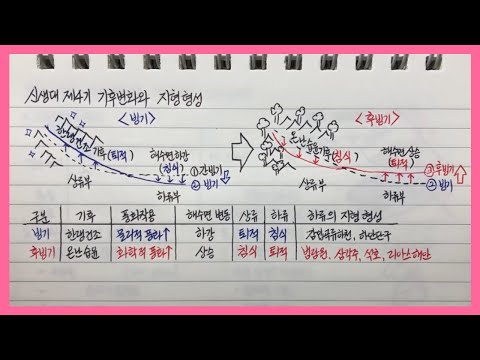 신생대 제4기 기후변화와 지형형성
<빙기>
<후빙기>
한랭건조 기후(퇴적)
해수면 하강
(침식)
①간빙기
②빙기
상류부
하류부
온난습윤기후(침식)
해수면 상승
(퇴적)
③후빙기
②빙기
상류부
하류부
구분 기후 풍화작용 해수면 변동 상류 하류 하류의 지형 형성
빙기 한랭건조 물리적 풍화↑ 하강 퇴적 침식 감입곡류하천, 하안단구
후빙기 온난습윤 화학적 풍화↑ 상승 침식 퇴적 범람원, 삼각주, 석호, 리아스해안